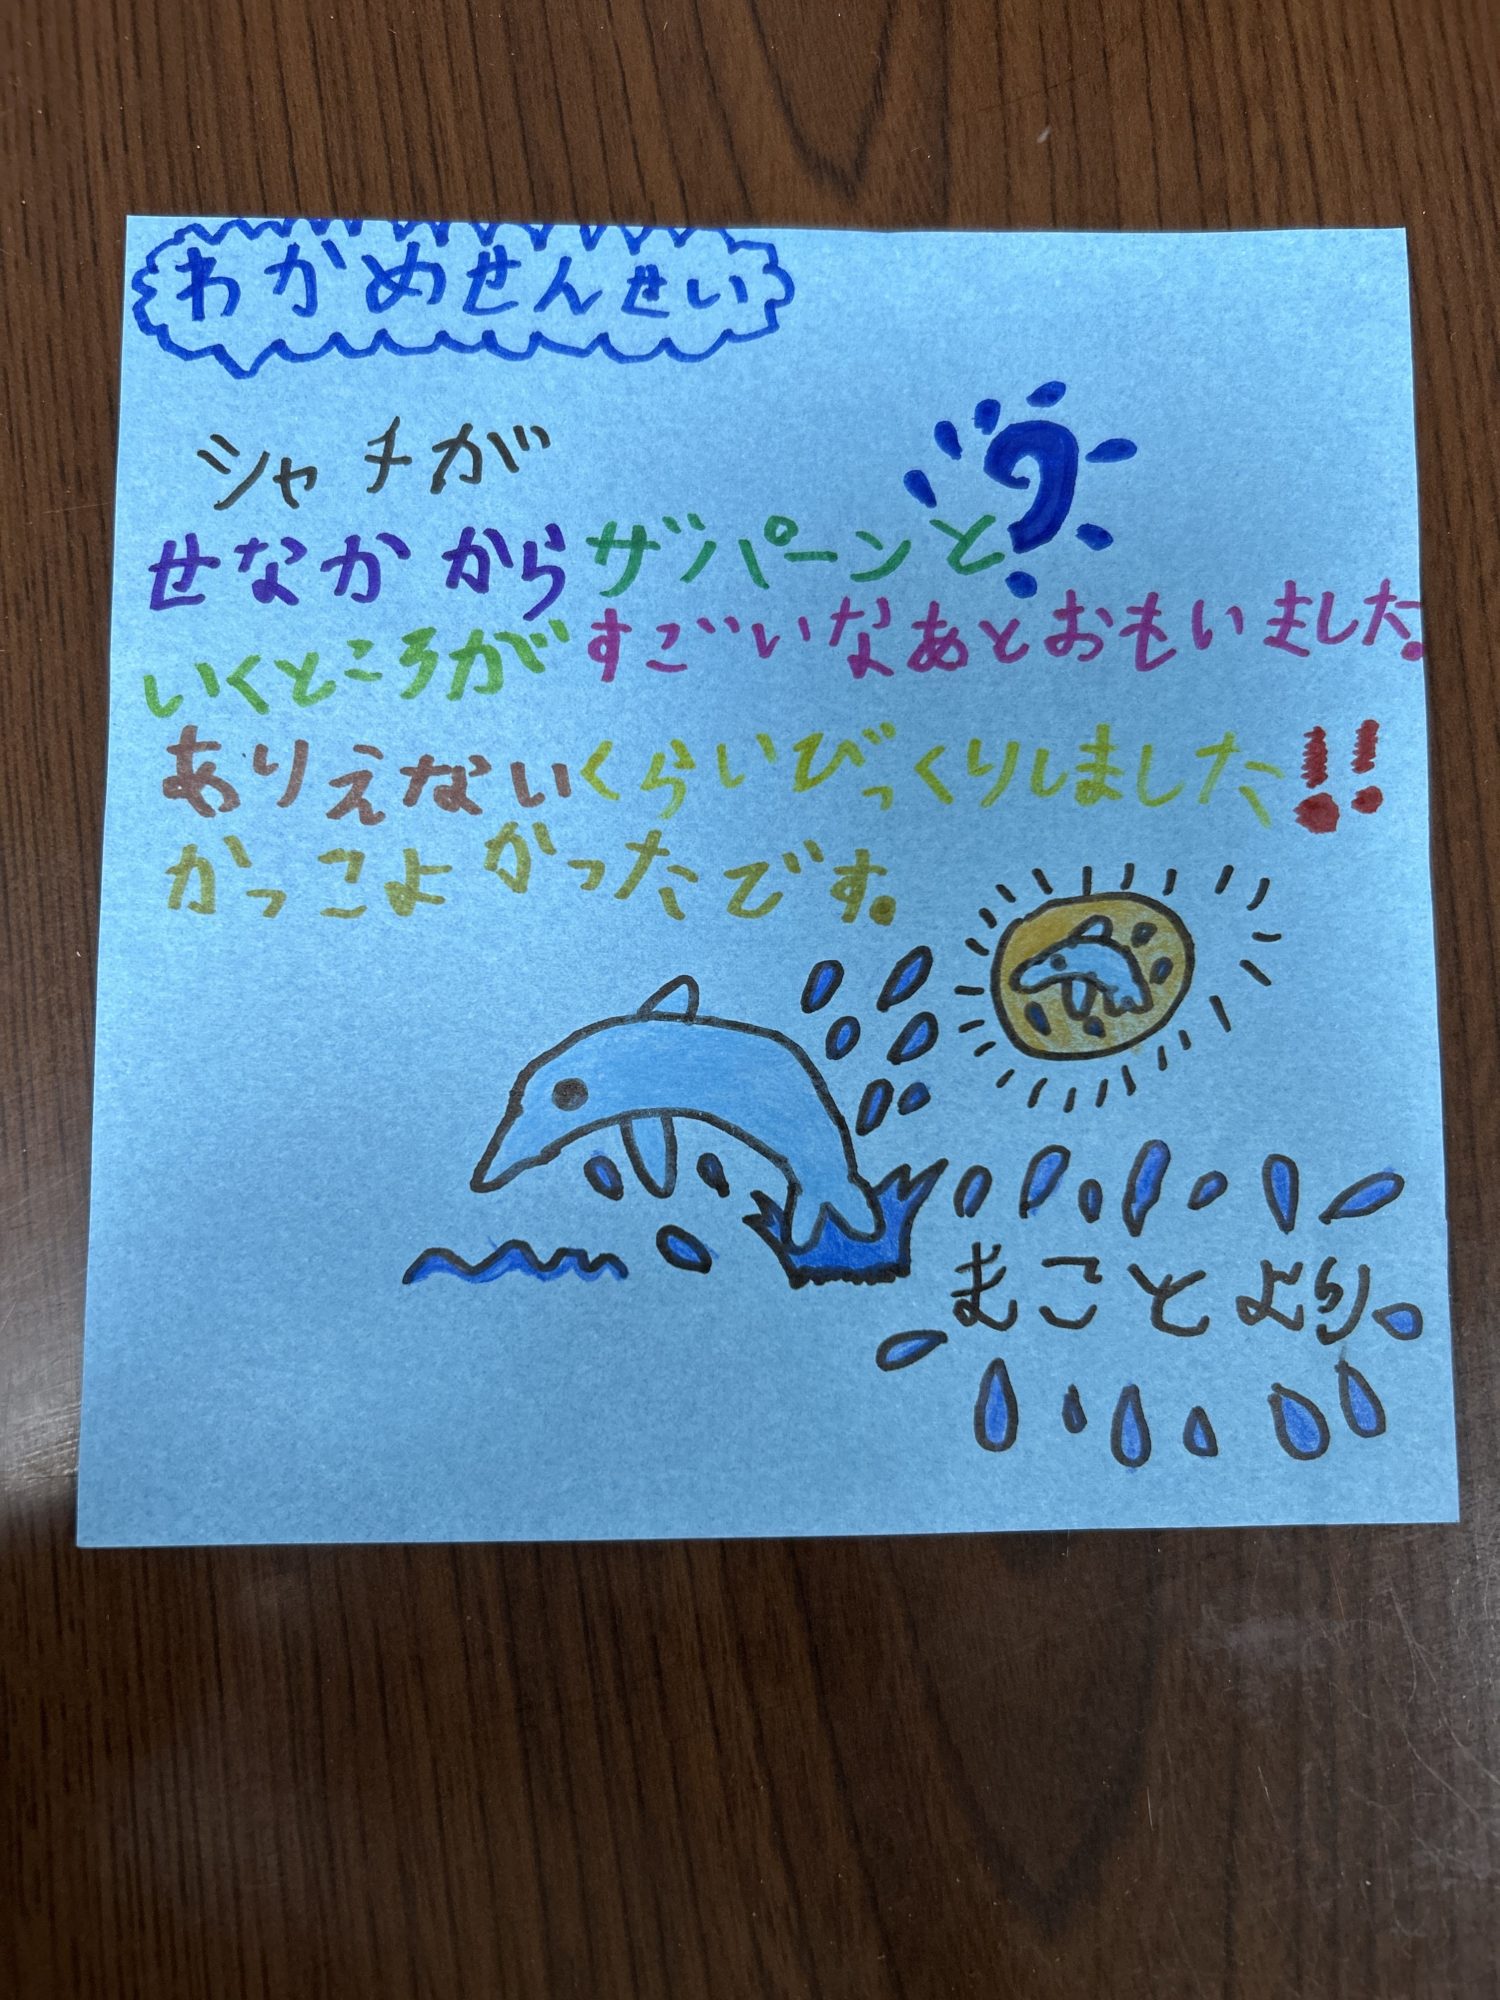 わかめせんせい
シャチが
せなかからザパーンと
いくところがすごいなあとおもいました。
ありえないくらいびっくりしました!!
かっこよかったです。
まことより。